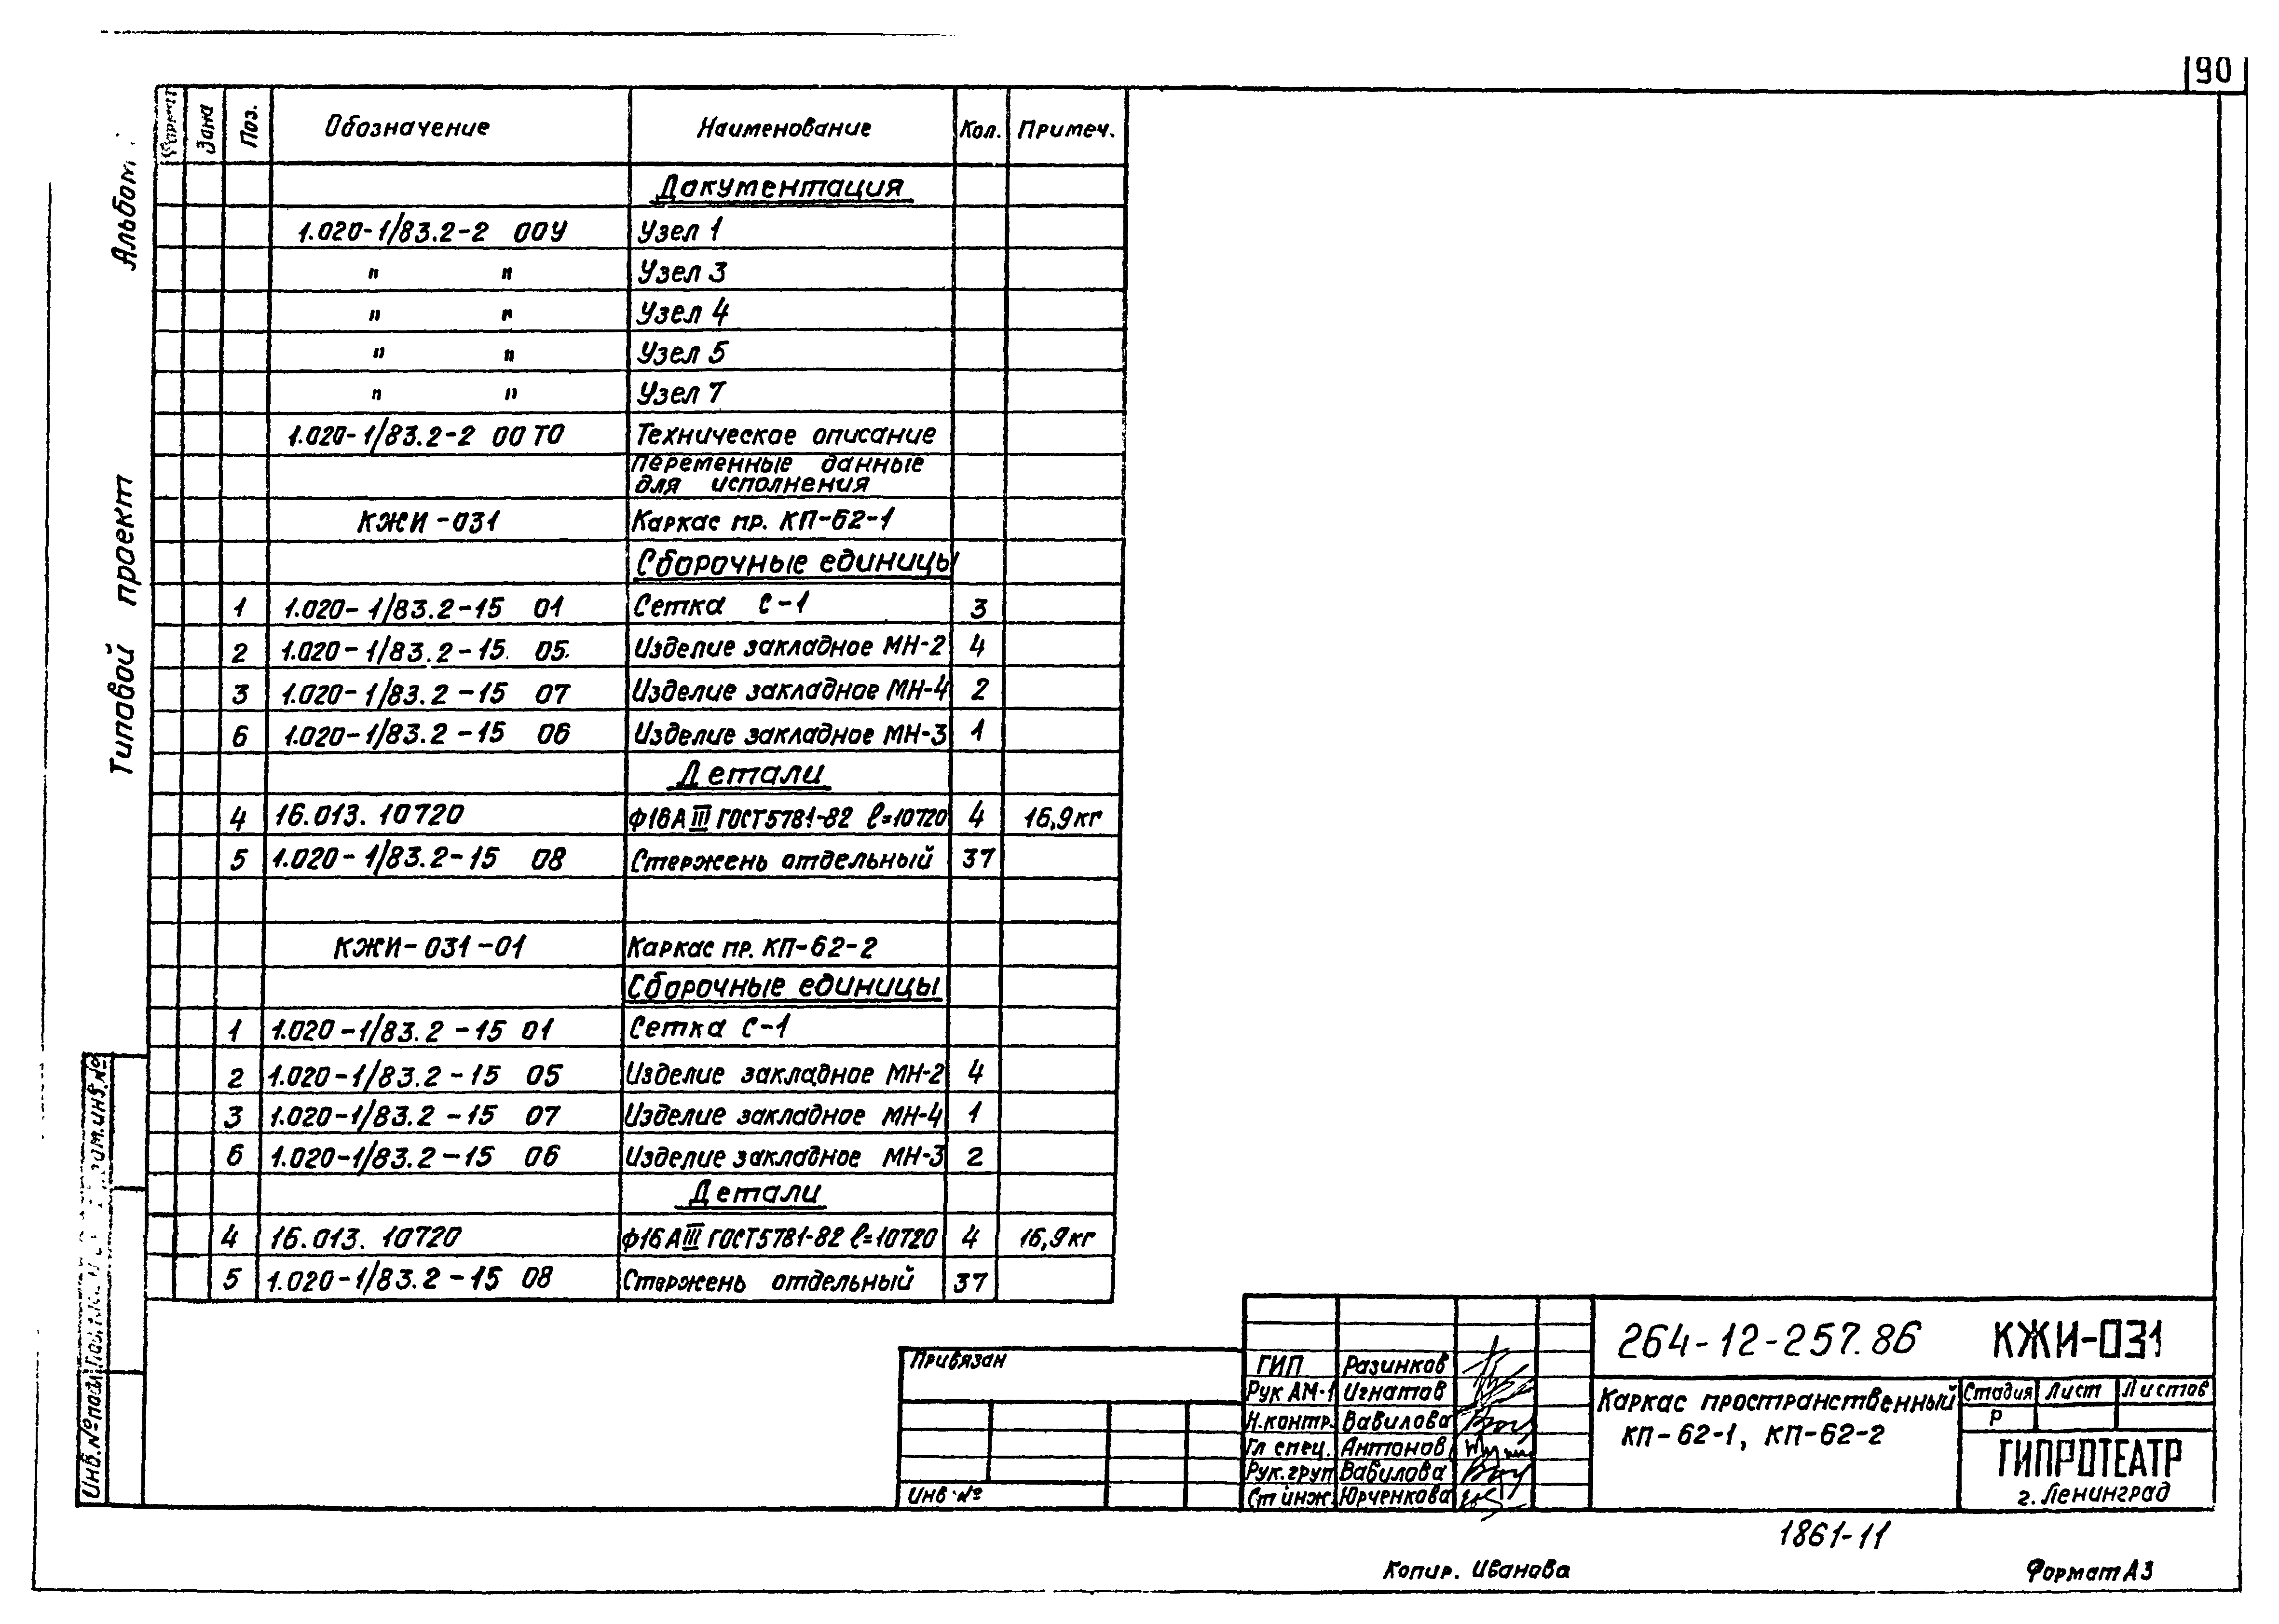 90
Зона Поз. Обозначение Наименование Кол. Примеч.
Документация
1.020-1/83.2-2 00У Узел 1
" " Узел 3
" " Узел 4
" " Узел 5
" " Узел 7
1.020-1/83.2-2 00 ТО Техническое описание
переменные данные
для исполнения
КЖИ-031 Каркас пр. КП-62-1
Сборочные единицы
1 1.020-1/83.2-15 01 Сетка С-1 3
2 1.020-1/83.2-15 05 Изделие закладное МН-2 4
3 1.020-1/83.2-15 07 Изделие закладное МН-4 2
6 1.020-1/83.2-15 06 Изделие закладное МН-3 1
Детали
4 16.013. 10720 ф16АIII ГОСТ5781-82 ℓ=10720 4 16,9кг
5 1.020-1/83.2-15 08 Стержень отдельный 37
КЖИ-031-01 Каркас пр. КП-62-2
Сборочные единицы
1 1.020-1/83.2-15 01 Сетка С-1
2 1.020-1/83.2-15 05 Изделие закладное МН-2 4
3 1.020-1/83.2-15 07 Изделие закладное МН-4 1
6 1.020-1/83.2-15 06 Изделие закладное МН-3 2
Детали
4 16.013. 10720 ф16АIII ГОСТ5781-82 ℓ=10720 4 16,9кг
5 1.020-1/83.2-15 08 Стержень отдельный 37
Альбом
Типовой проект
Инв.№подл.
Привязан
Инв.№
ГИП Разинков
Рук АМ-1 Игнатов
Н.контр. Вавилова
Гл спец. Антонов
Рук.груп Вавилова
Ст инж. Юрченкова
264-12-257.86 КЖИ-031
Каркас пространственный
КП-62-1, КП-62-2
Стадия Лист Листов
Р
ГИПРОТЕАТР
г. Ленинград
1861-11
Копир. Иванова Формат А3